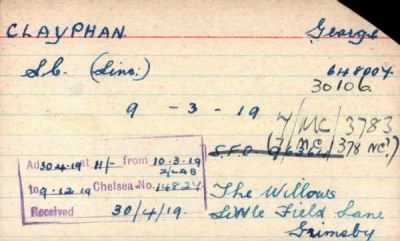 CLAYPHAN. George
L.C. (Linc:) 648004.
30106.
9 - 3 - 19
7/MC/3783
(7/MC/378 NC?)
S.F.O
Ad 30.4.19 at 11/- from 10-3-19
2/LAB
to 9.12.19 Chelsea No. 14824
Received 30/4/19.
The Willows
Little Field Lane
Grimsby